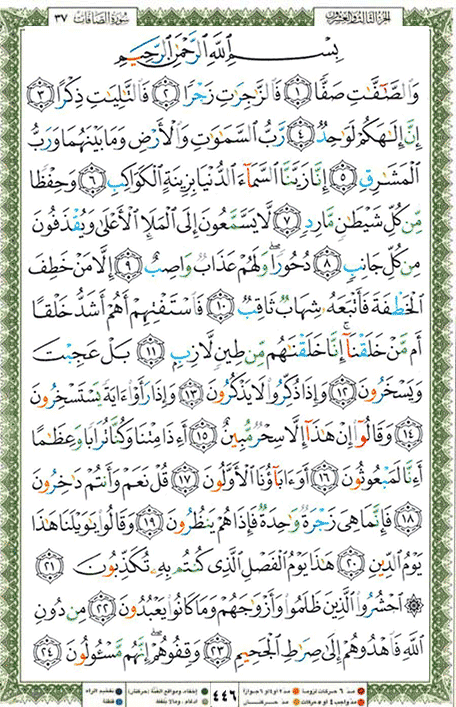 سُورَةُ الصَّافَّاتِ ٣٧ الجزء الثالث والعشرون
بِسْمِ اللَّهِ الرَّحْمَٰنِ الرَّحِيمِ
وَالصَّٰٓفَّٰتِ صَفًّا ١ فَالزَّٰجِرَٰتِ زَجْرًا ٢ فَالتَّٰلِيَٰتِ ذِكْرًا ٣
إِنَّ إِلَٰهَكُمْ لَوَٰحِدٌ ٤ رَّبُّ السَّمَٰوَٰتِ وَالْأَرْضِ وَمَا بَيْنَهُمَا وَرَبُّ
الْمَشَٰرِقِ ٥ إِنَّا زَيَّنَّا السَّمَآءَ الدُّنْيَا بِزِينَةٍ الْكَوَاكِبِ ٦ وَحِفْظًا
مِّن كُلِّ شَيْطَٰنٍ مَّارِدٍ ٧ لَّا يَسَّمَّعُونَ إِلَى الْمَلَإِ الْأَعْلَىٰ وَيُقْذَفُونَ
مِن كُلِّ جَانِبٍ ٨ دُحُورًا ۖ وَلَهُمْ عَذَابٌ وَاصِبٌ ٩ إِلَّا مَنْ خَطِفَ
الْخَطْفَةَ فَأَتْبَعَهُۥ شِهَابٌ ثَاقِبٌ ١٠ فَاسْتَفْتِهِمْ أَهُمْ أَشَدُّ خَلْقًا
أَم مَّنْ خَلَقْنَآ ۚ إِنَّا خَلَقْنَٰهُم مِّن طِينٍ لَّازِبٍ ١١ بَلْ عَجِبْتَ
وَيَسْخَرُونَ ١٢ وَإِذَا ذُكِّرُوا لَا يَذْكُرُونَ ١٣ وَإِذَا رَأَوْا ءَايَةً يَسْتَسْخِرُونَ
١٤ وَقَالُوٓا إِنْ هَٰذَآ إِلَّا سِحْرٌ مُّبِينٌ ١٥ أَءِذَا مِتْنَا وَكُنَّا تُرَابًا وَعِظَٰمًا
أَءِنَّا لَمَبْعُوثُونَ ١٦ أَوَءَابَآؤُنَا الْأَوَّلُونَ ١٧ قُلْ نَعَمْ وَأَنتُمْ دَٰخِرُونَ
١٨ فَإِنَّمَا هِيَ زَجْرَةٌ وَٰحِدَةٌ فَإِذَا هُمْ يَنظُرُونَ ١٩ وَقَالُوا يَٰوَيْلَنَا هَٰذَا
يَوْمُ الدِّينِ ٢٠ هَٰذَا يَوْمُ الْفَصْلِ الَّذِي كُنتُم بِهِۦ تُكَذِّبُونَ ٢١
۞ احْشُرُوا الَّذِينَ ظَلَمُوا وَأَزْوَٰجَهُمْ وَمَا كَانُوا يَعْبُدُونَ ٢٢ مِن دُونِ
اللَّهِ فَاهْدُوهُمْ إِلَىٰ صِرَٰطِ الْجَحِيمِ ٢٣ وَقِفُوهُمْ ۖ إِنَّهُم مَّسْـُٔولُونَ ٢٤
٤٤٦
مد ٦ حركات لزوماً مد ٢ او ٤ او ٦ جوازاً إخفاء، ومواقع الغنة (حركتان) تفخيم الراء
مد واجب ٤ او ٥ حركات مد حركتان إدغام، وما لا يلفظ قلقلة